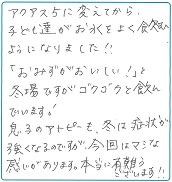 アクアス5に変えてから、
子ども達がお水をよく飲む
ようになりました!!
「おみずがおいしい!」と
冬場ですがゴクゴクと飲ん
でいます!
息子のアトピーも、冬は症状が
強くなるのですが、今回はマシな
感じがあります。本当に有難う
ございます!!